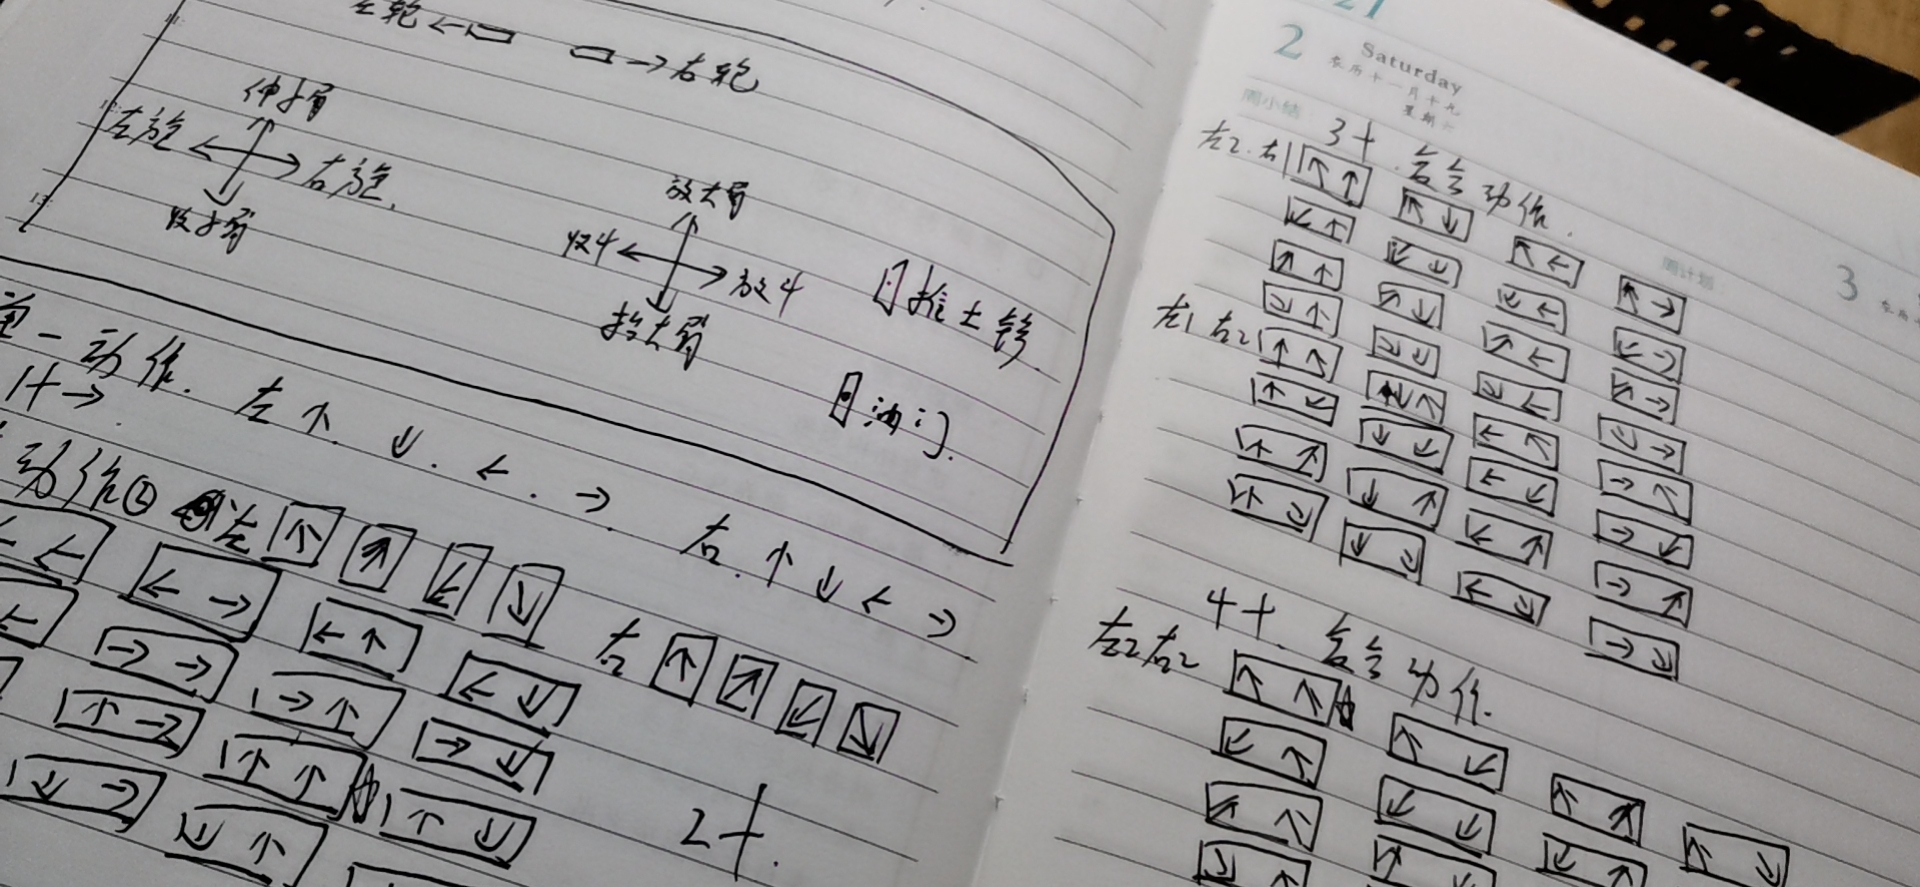 左轮 ← → 右轮
伸小臂
左旋 右旋
收小臂
放大臂
收斗 放斗
抬大臂
推土铲
油门
单一动作. 左 ↑. ↓. ←. →. 右. ↑ ↓ ← →
动作② 左 ↖ ↗ ↙ ↘ 右 ↖ ↗ ↙ ↘
← →
← ↑
← ↓
→ →
→ ↑
→ ↓
↑ →
↑ ↑
↑ ↓
↓ →
↓ ↑
2个.
21
2 Saturday
农历十一月十九
星期六
周小结
3个.合会动作.
左2.右1
↖ ↑ ↖ ↓ ↖ ← ↖ →
↙ ↑ ↙ ↓ ↙ ← ↙ →
↗ ↑ ↗ ↓ ↗ ← ↗ →
↘ ↑ ↘ ↓ ↘ ← ↘ →
左1右2
↑ ↖ ↓ ↖ ← ↖ → ↖
↑ ↙ ↓ ↙ ← ↙ → ↙
↑ ↗ ↓ ↗ ← ↗ → ↗
↑ ↘ ↓ ↘ ← ↘ → ↘
周计划
3
4个.合会动作.
左2右2
↖ ↖ ↖ ↙ ↖ ↗ ↖ ↘
↙ ↖ ↙ ↙ ↙ ↗
↗ ↖
↘ ↖